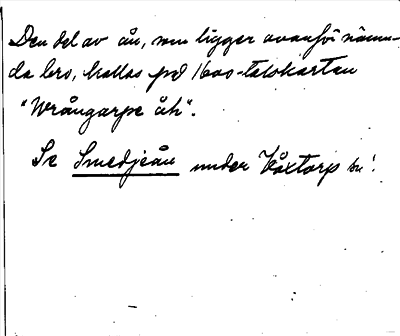 Den del av ån, som ligger ovanför nämn-
da bro, kallas på 1600-talskartan
"Wrångarpe åh".
Se Smedjeån under Våxtorp sn!